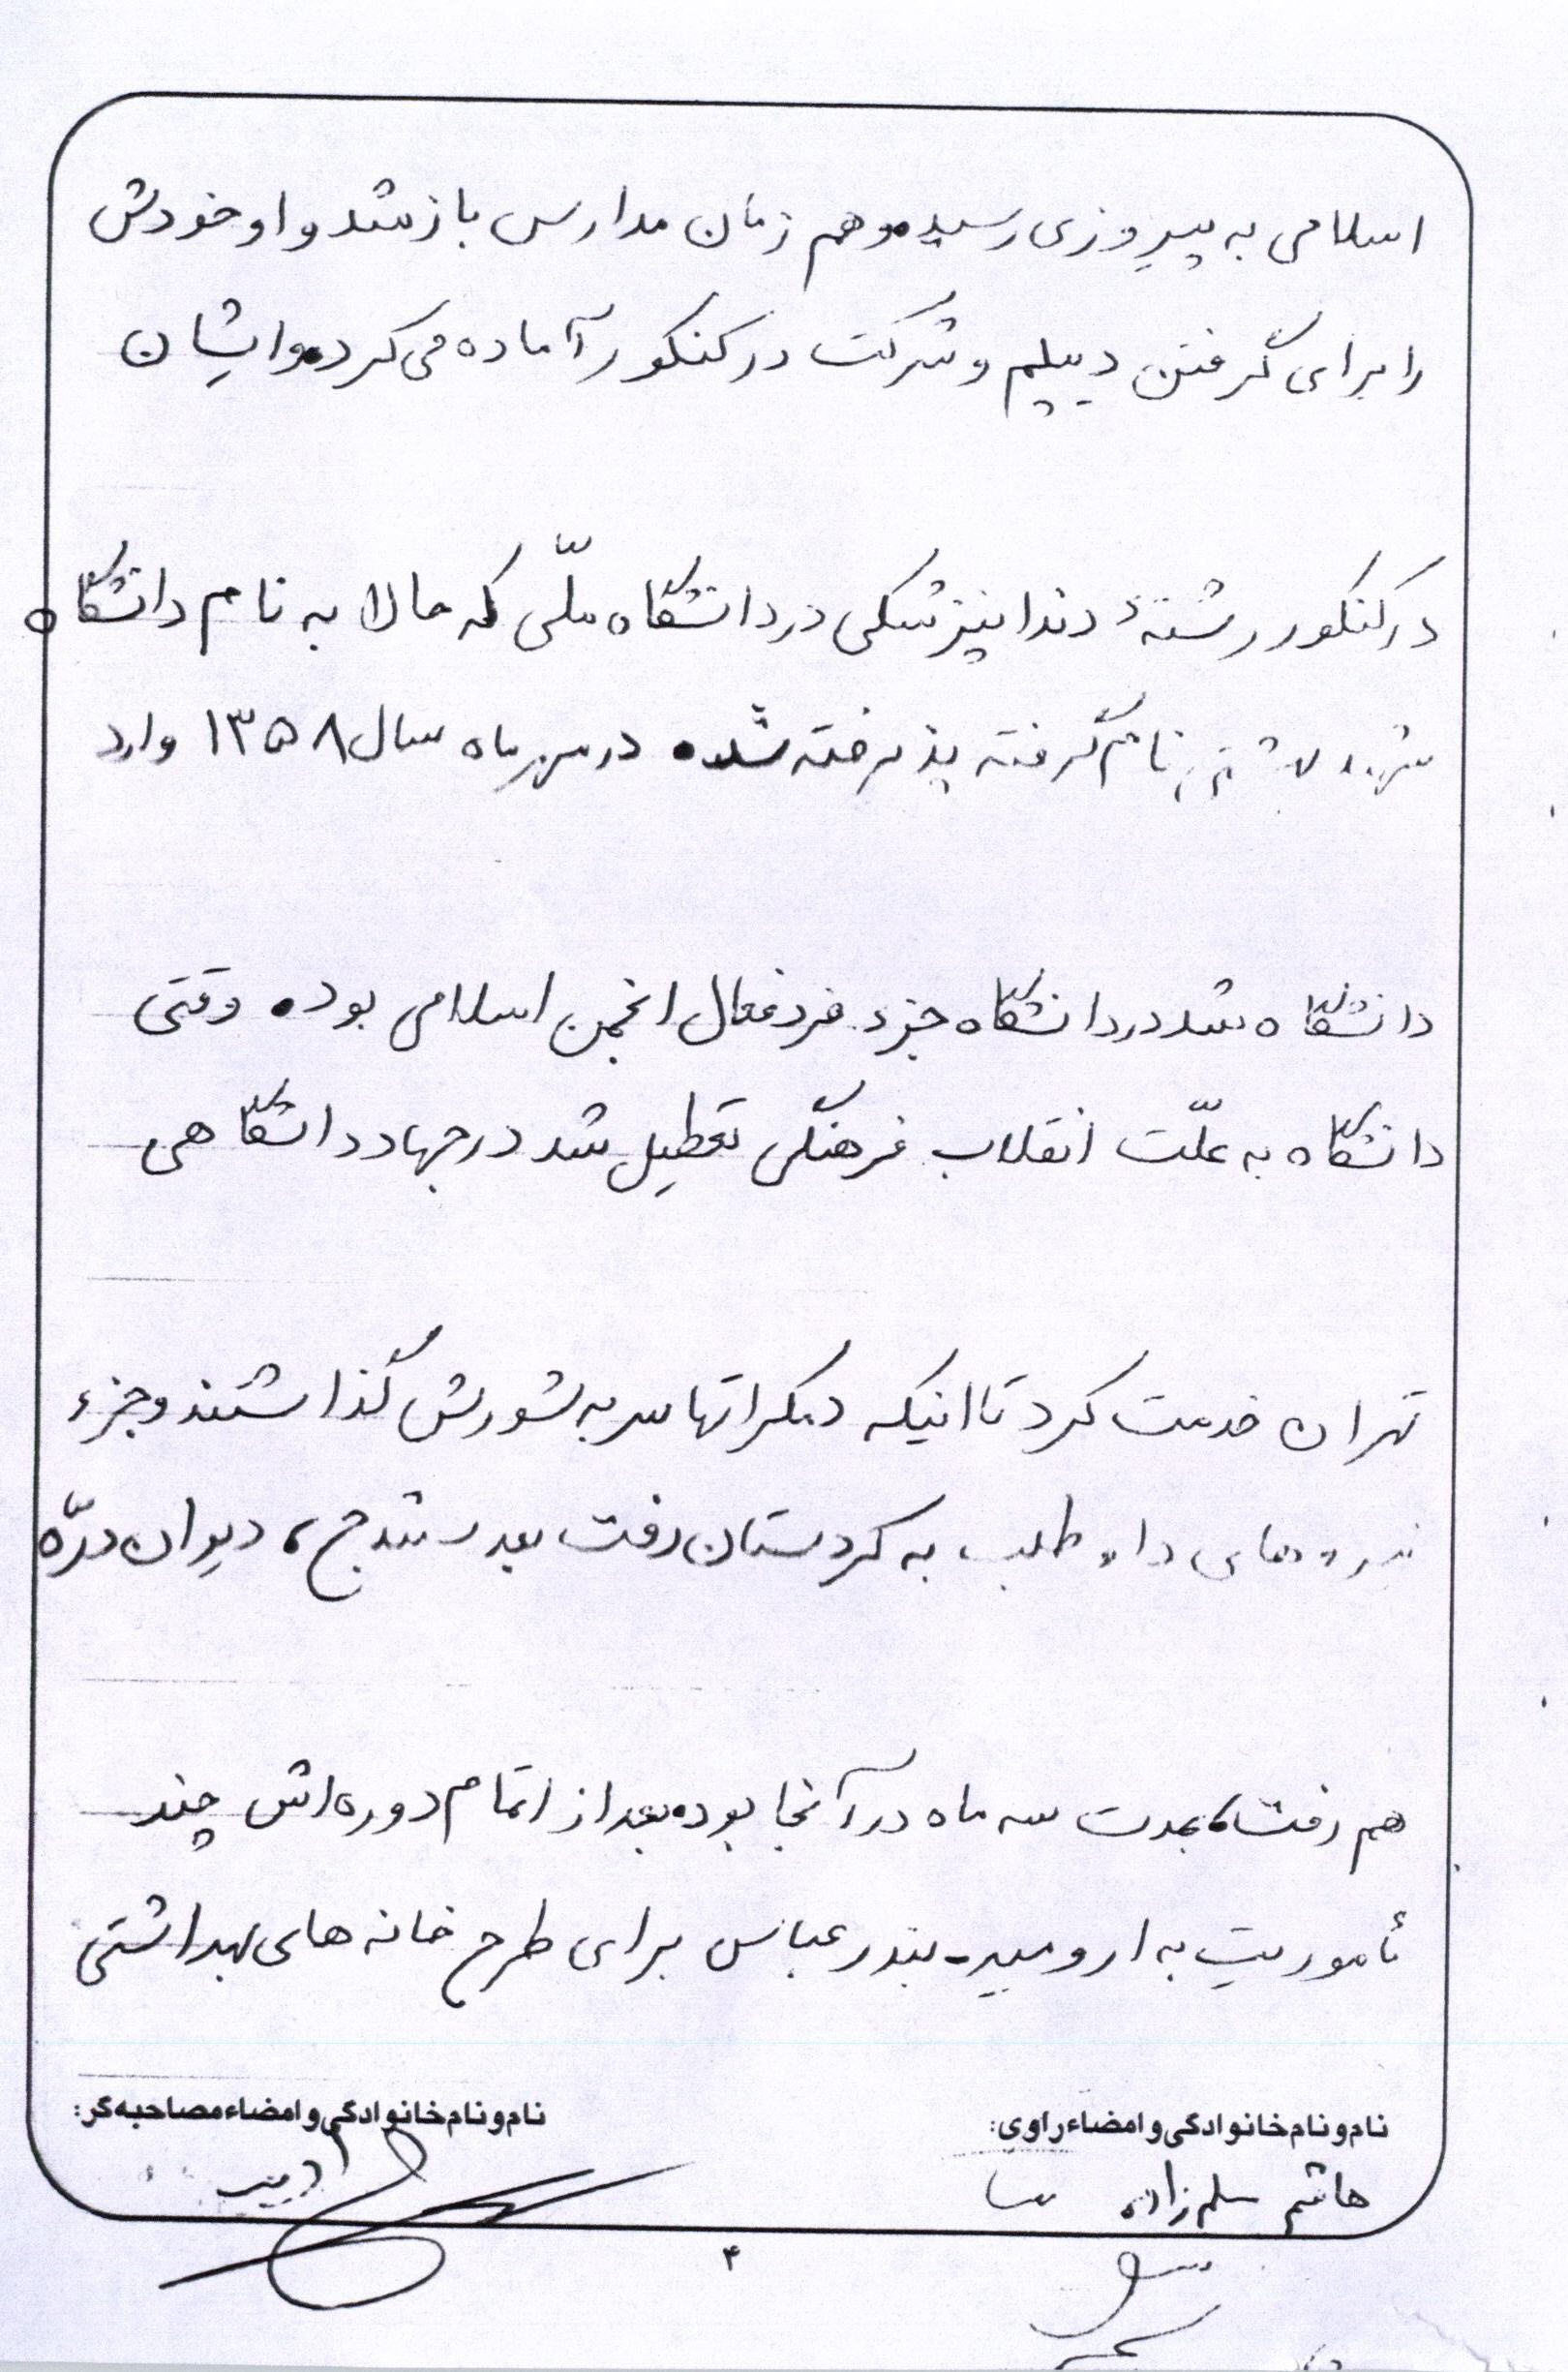 اسلامی به پیروزی رسید و هم زمان مدارس باز شد و او خودش
را برای گرفتن دیپلم و شرکت در کنکور آماده می کرد و ایشان
در کنکور رشتهٔ دندانپزشکی در دانشگاه ملّی که حالا به نام دانشگاه
شهید بهشتی نام گرفته پذیرفته شده در مهر ماه سال ۱۳۵۸ وارد
دانشگاه شد در دانشگاه جزء فرد فعال انجمن اسلامی بوده وقتی
دانشگاه به علّت انقلاب فرهنگی تعطیل شد در جهاد دانشگاهی
تهران خدمت کرد تا اینکه دمکراتها سر به شورش گذاشتند و جزء
نیروهای داوطلب به کردستان رفت بعد سنندج، دیوان درّه
هم رفت، بمدت سه ماه در آنجا بوده بعد از اتمام دوره اش چند
مأموریت به ارومیه - بندرعباس برای طرح خانه های بهداشتی
نام و نام خانوادگی و امضاء راوی:
نام و نام خانوادگی و امضاء مصاحبه گر:
هاشم
۴